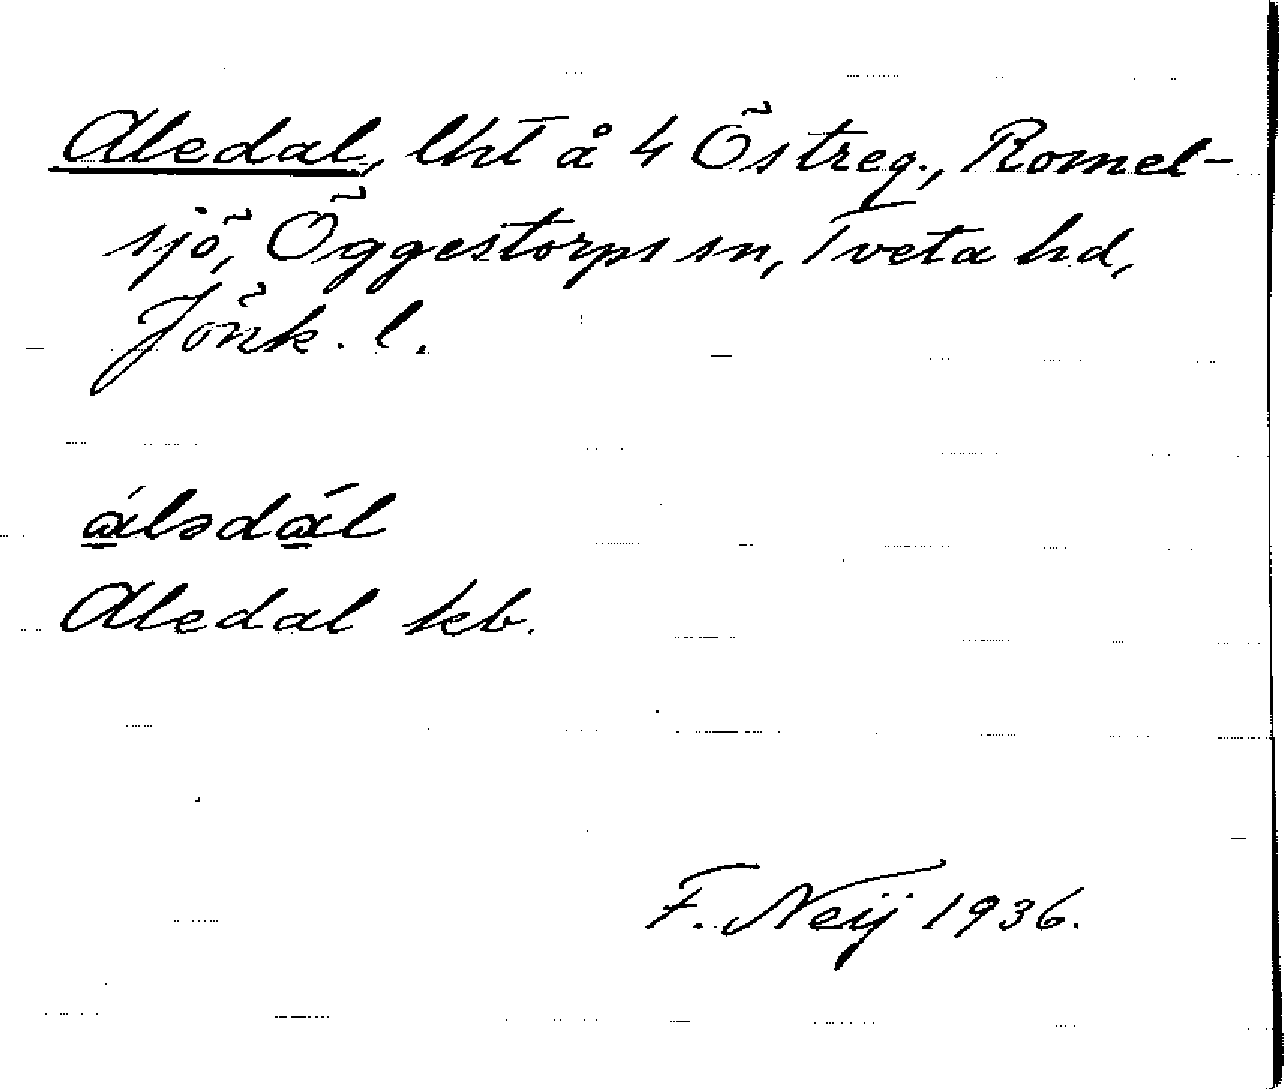 Aledal, lht å 4 Östreg., Romel-
sjö, Öggestorps sn, Tveta hd,
Jönk. l.
álədál
Aledal kb.
F. Neij 1936.